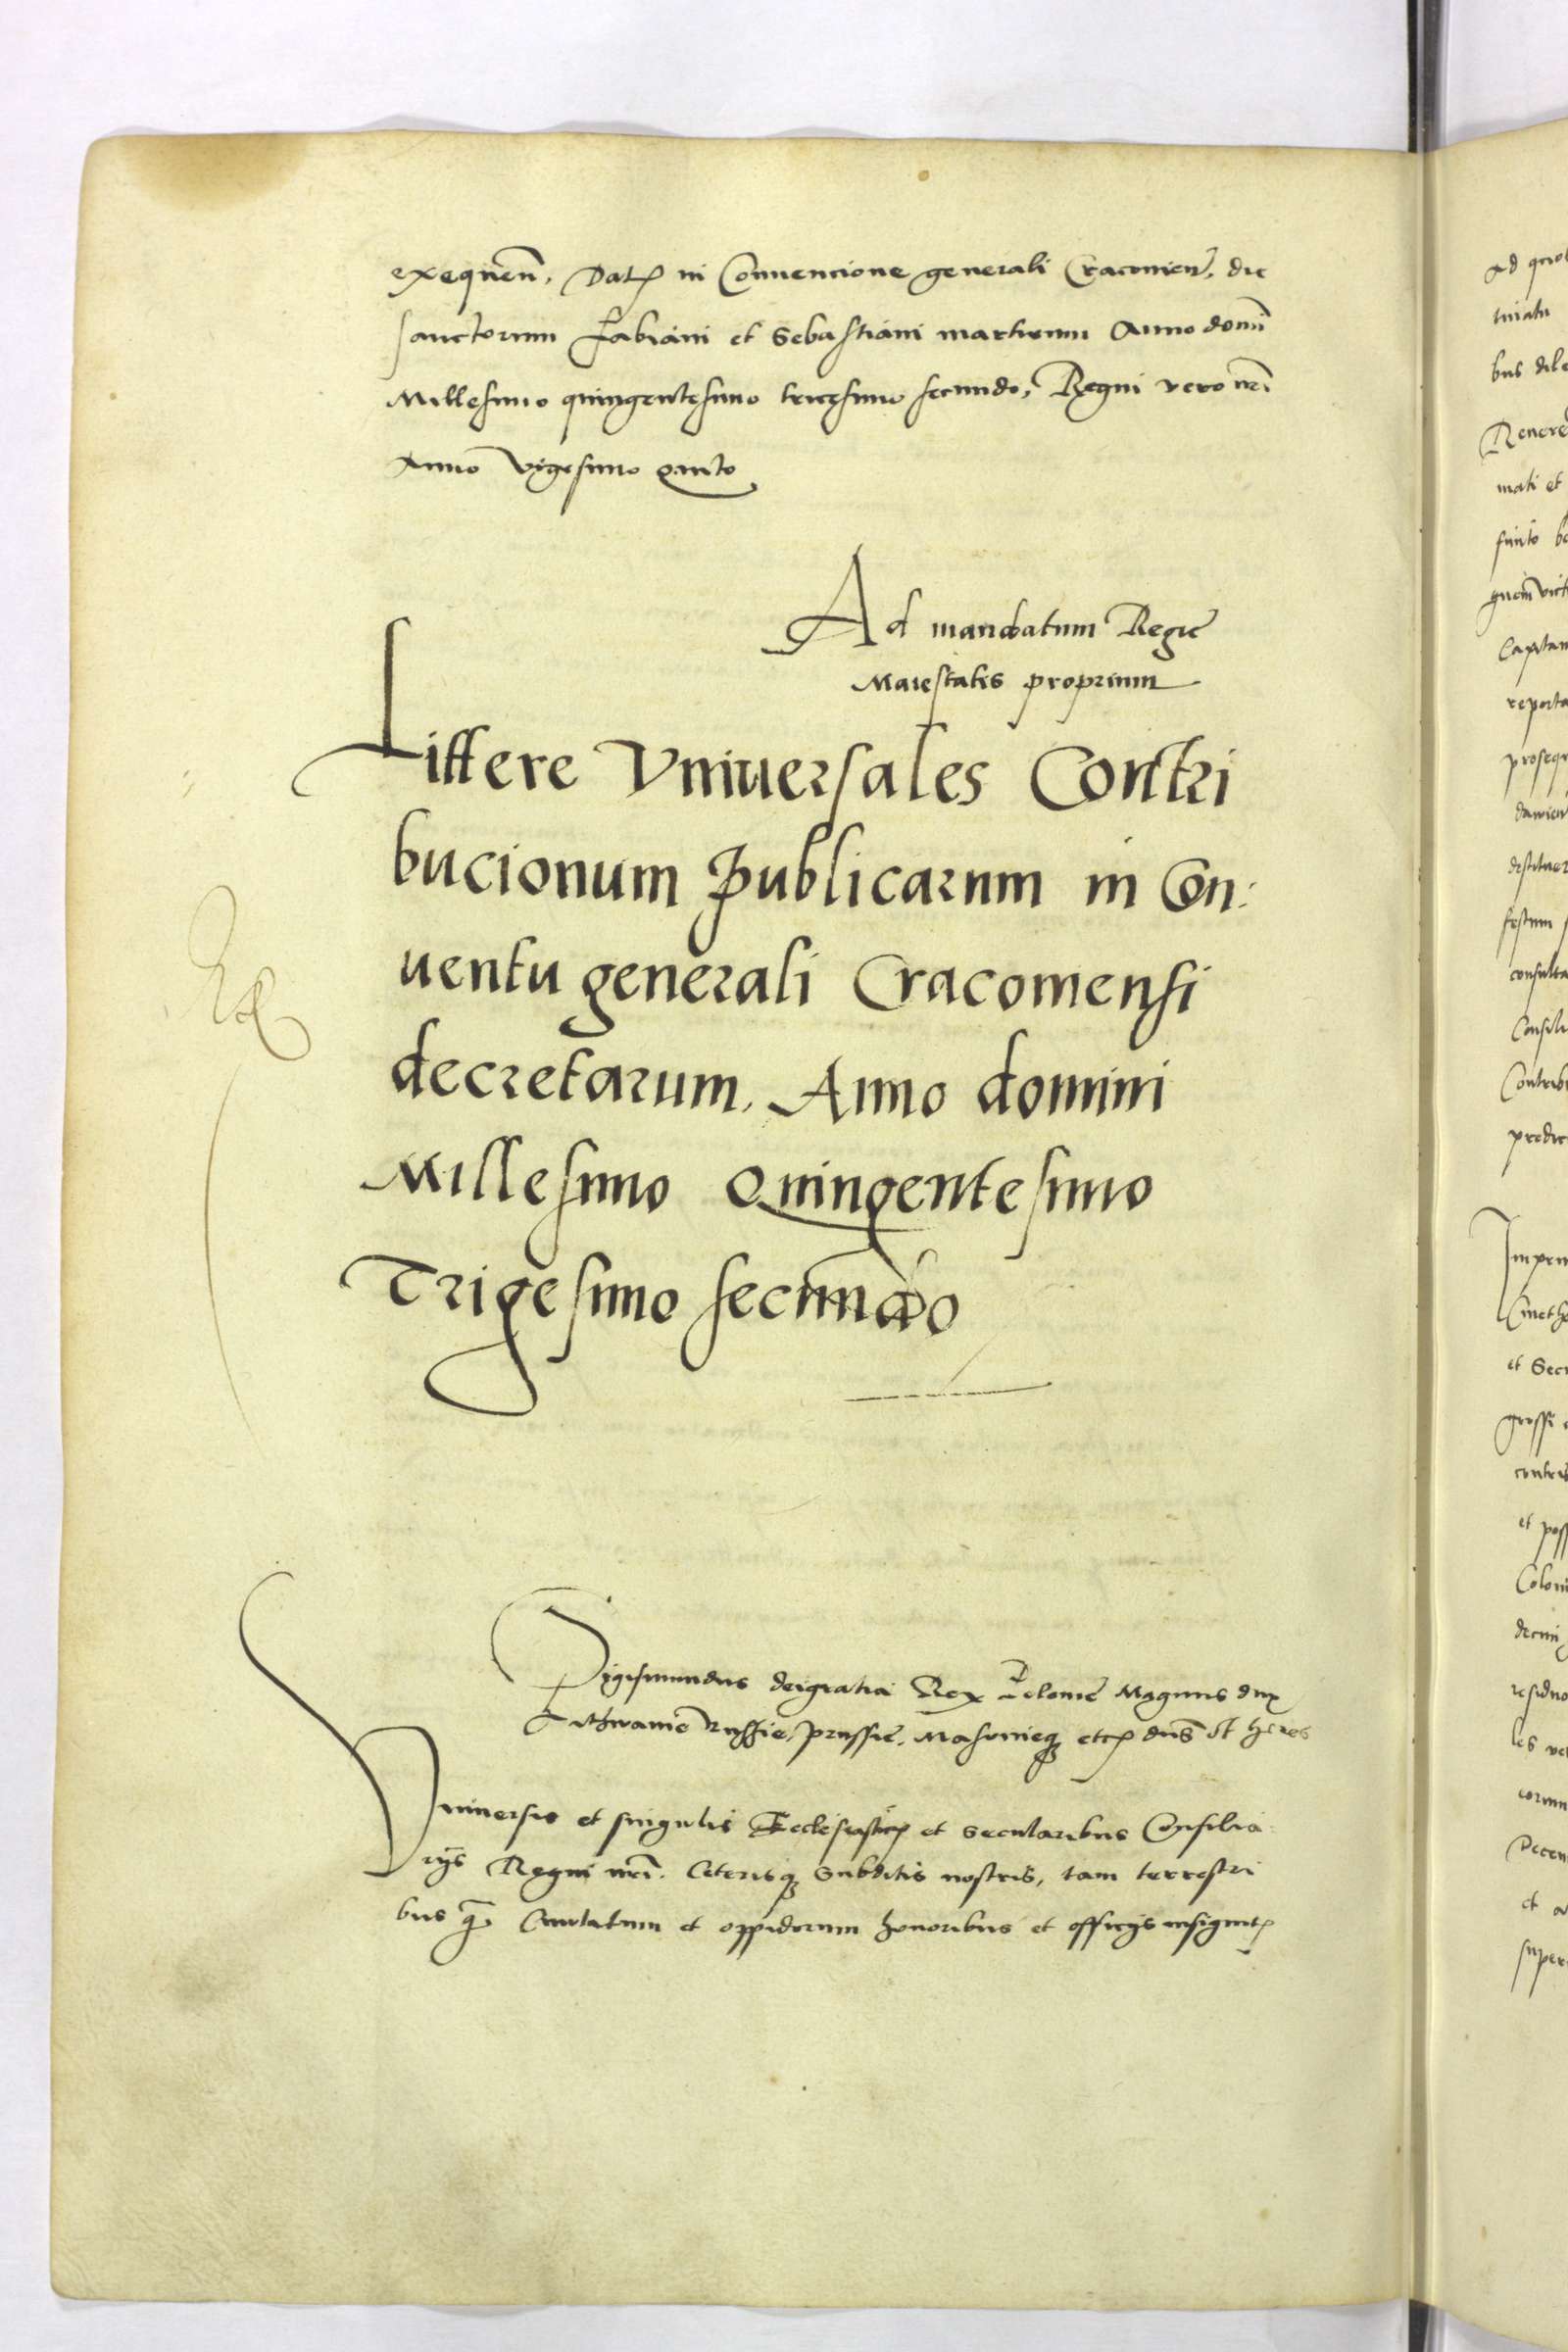 exequen̄. Dat in Conuencione generali Cracouien̄. die
sanctorum Fabiani et Sebastiani martirum Anno domī
Millesimo quingentesimo tricesimo secundo, Regni vero nr̄i
Anno vigesimo qnto
Ad mandatum Regie
Maiestatis proprium
Littere Vniuersales Contri
bucionum Publicarum in Con:
uentu generali Cracouiensi
decretarum. Anno domini
Millesimo Quingentesimo
Trigesimo secundo
Sigismundus deigratia Rex Polonie Magnus dux
Lithwanie Russie, Prussie, Masouieq etc dns̄ et heres
Vniuersis et singulis Ecclesiastic et Secularibus Consilia
rijs Regni nr̄i. Ceterisq subditis nostris, tam terrestri
bus q̄ Ciuitatum et oppidorum honoribus et officijs insignit
ad quo
bus dile
mati et
Capitan
reporta
prosequ
festum
consulta
Consili
Contrib
predic
et Secu
grossi
contrib
et poss
Colon
residuo
les vel
et a
super